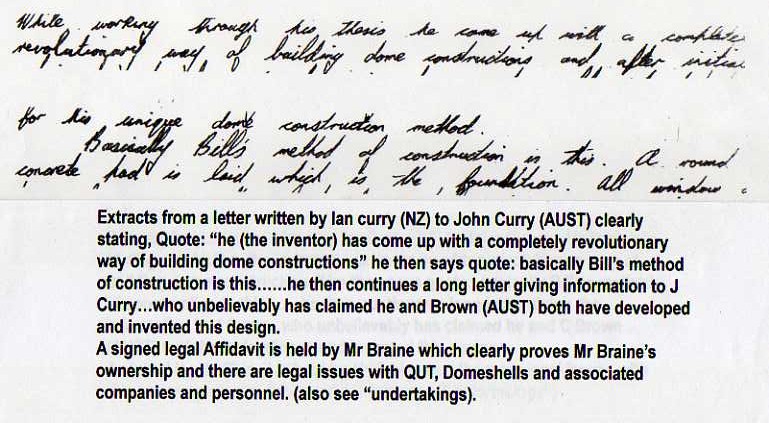 While working through his thesis he came up with a complete
revolutionary way of building dome constructions and after initia
for his unique dome construction method.
Basically Bill's method of construction is this. A round
concrete pad is laid which is the foundation. All window
Extracts from a letter written by Ian curry (NZ) to John Curry (AUST) clearly
stating, Quote: “he (the inventor) has come up with a completely revolutionary
way of building dome constructions” he then says quote: basically Bill’s method
of construction is this......he then continues a long letter giving information to J
Curry...who unbelievably has claimed he and Brown (AUST) both have developed
and invented this design.
A signed legal Affidavit is held by Mr Braine which clearly proves Mr Braine’s
ownership and there are legal issues with QUT, Domeshells and associated
companies and personnel. (also see “undertakings).